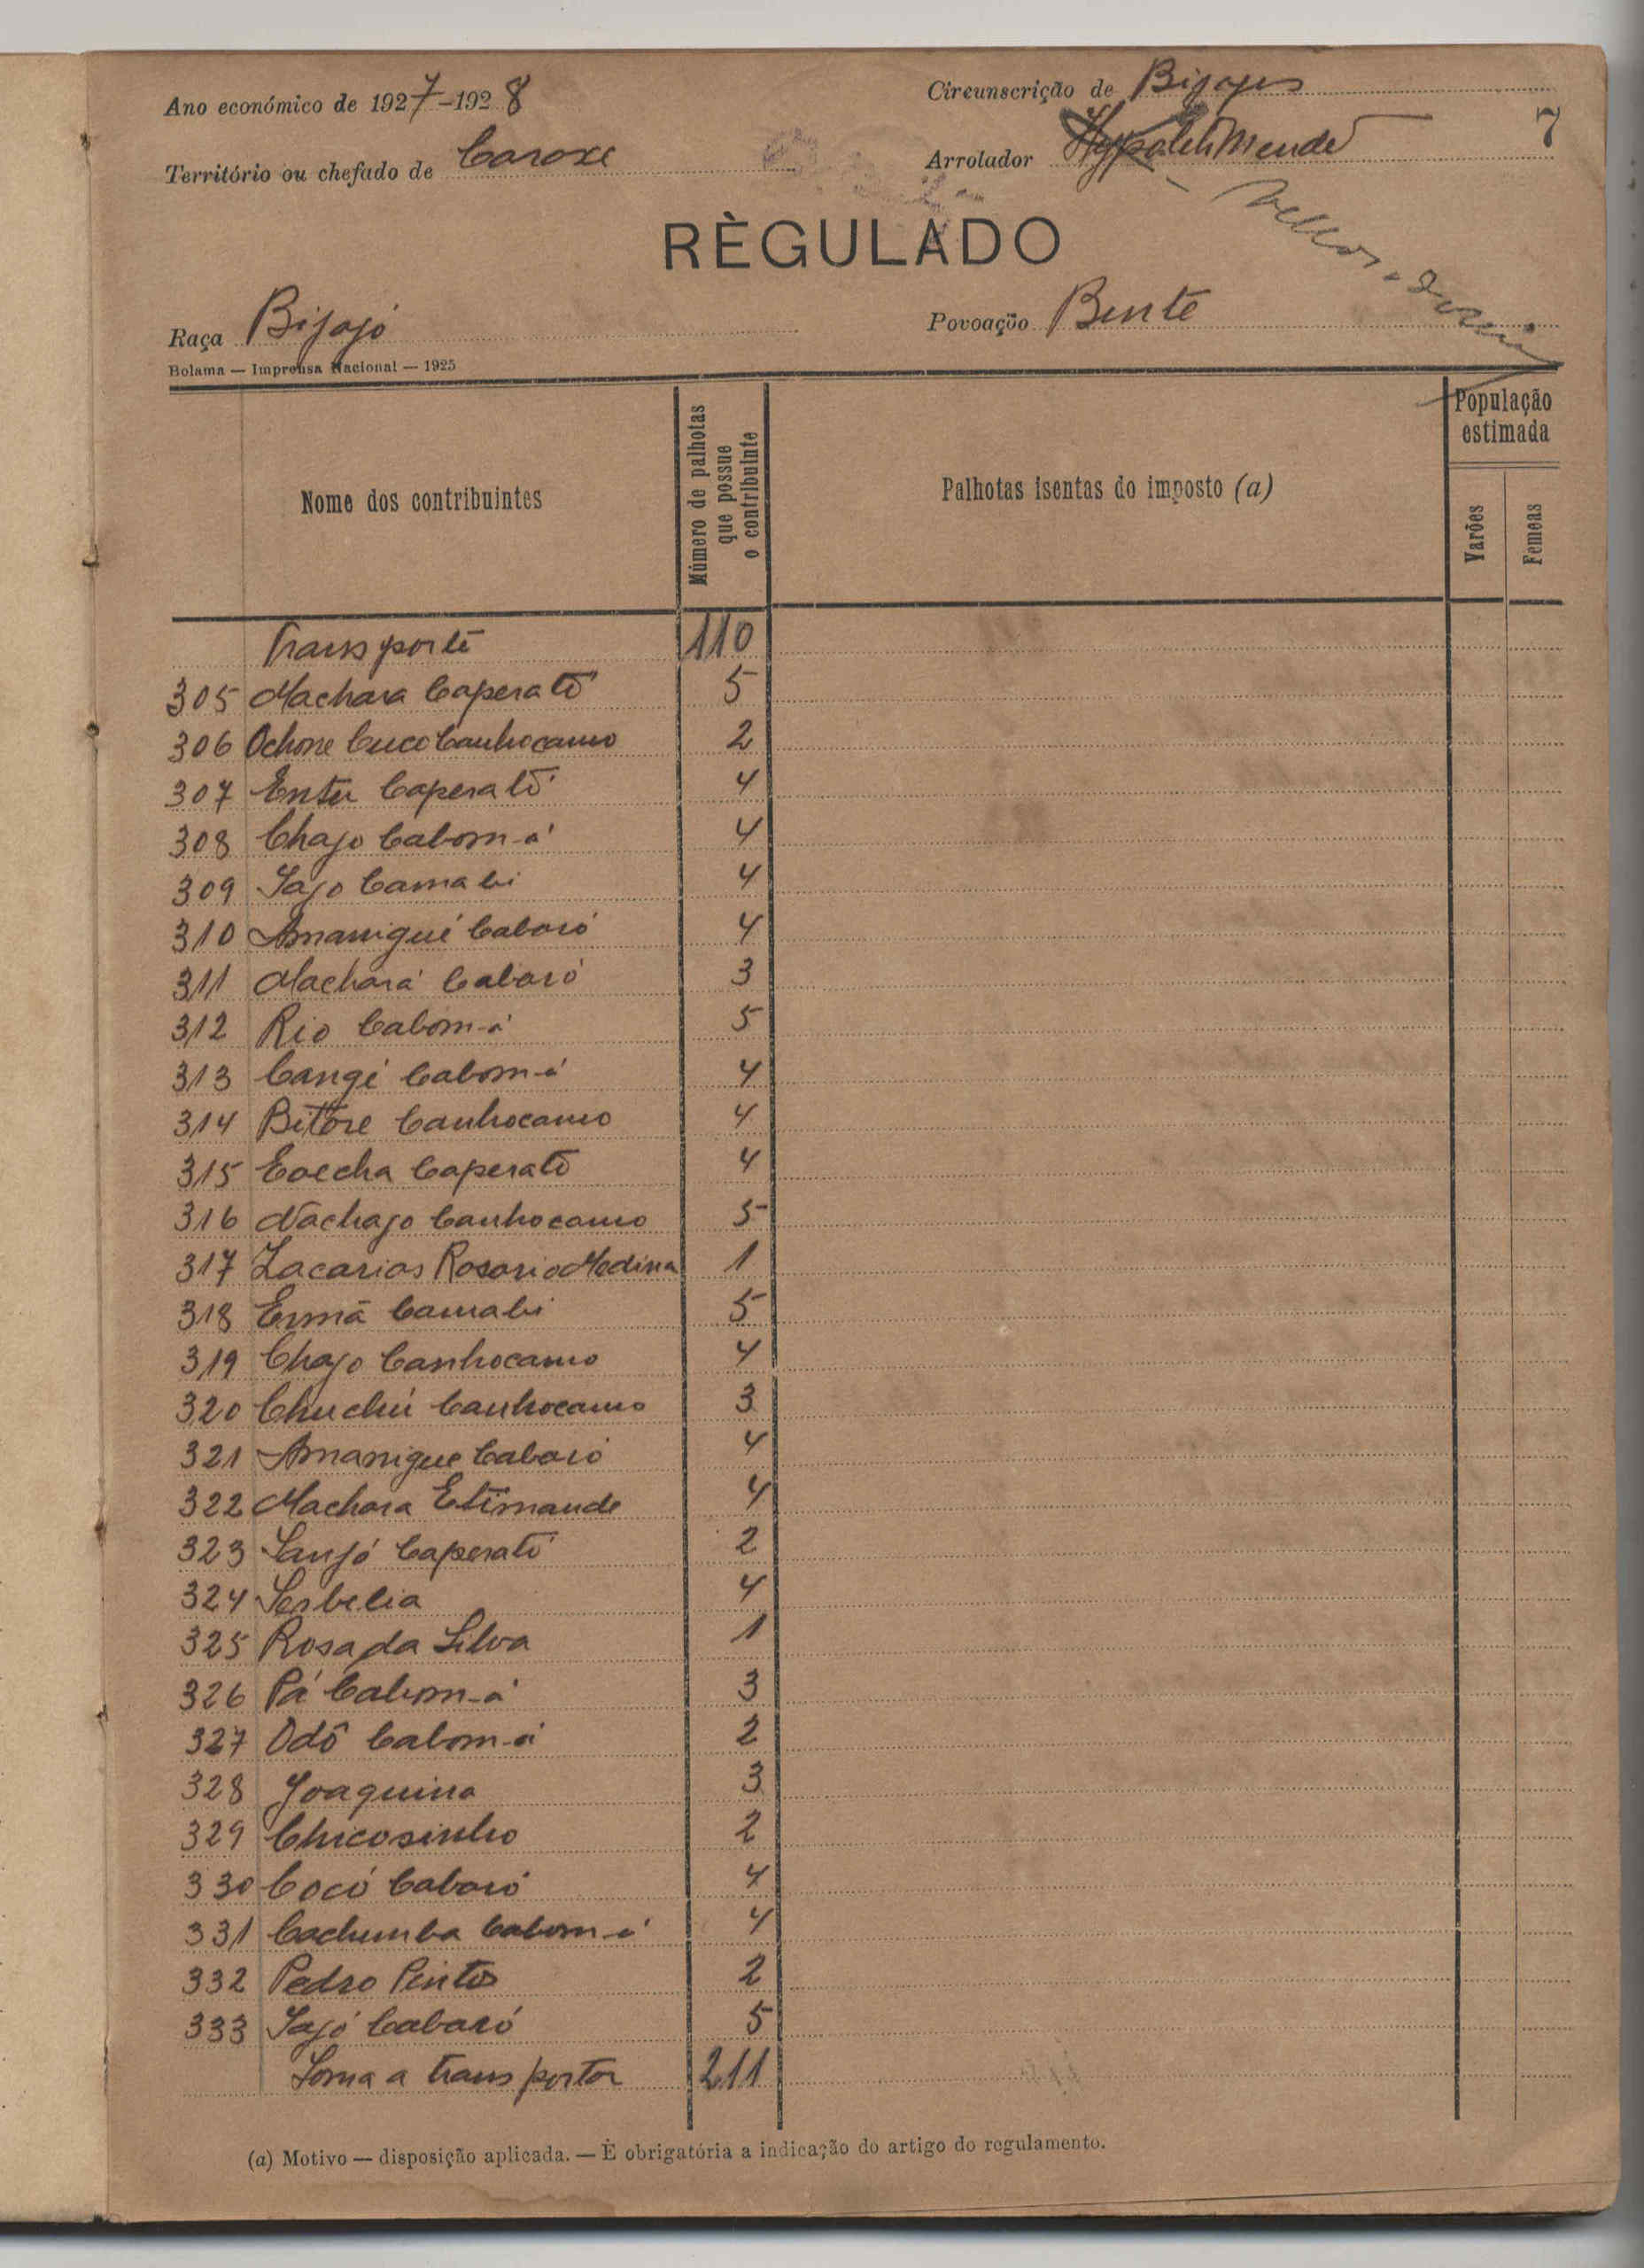 Ano económico de 1927-1928
Circunscrição de Bijagos
7
Território ou chefado de Caroxe
Arrolador Mendes
RÈGULADO
Raça Bijagó
Povoação Bente
Bolama — Imprensa Nacional — 1925
Nome dos contribuintes
Número de palhotas que possue o contribuinte
Palhotas isentas do imposto (a)
População estimada
Varões
Femeas
Transporte 110
305 Machara Caperatô 5
306 Ochone Cuco Canhocamo 2
307 Entu Caperatô 4
308 Chajo Cabom-á 4
309 Jajo Camabi 4
310 Amanigué Cabaró 4
311 Machará Cabaró 3
312 Rio Cabom-á 5
313 Cangé Cabom-á 4
314 Bitóre Canhocamo 4
315 Coecha Caperatô 4
316 Nachajo Canhocamo 5
317 Zacarias Rosario Medina 1
318 Ermã Camabi 5
319 Chajo Canhocamo 4
320 Chuchú Canhocamo 3
321 Amanigue Cabaró 4
322 Machara Etimande 4
323 Sanjó Caperatô 2
324 Serbelia 4
325 Rosa da Silva 1
326 Pá Cabom-á 3
327 Odô Cabom-á 2
328 Joaquina 3
329 Chicosinho 2
330 Cocó Cabaró 4
331 Cachumba Cabom-á 4
332 Pedro Pinto 2
333 Jajó Cabaró 5
Soma a transportar 211
(a) Motivo — disposição aplicada. — È obrigatória a indicação do artigo do regulamento.